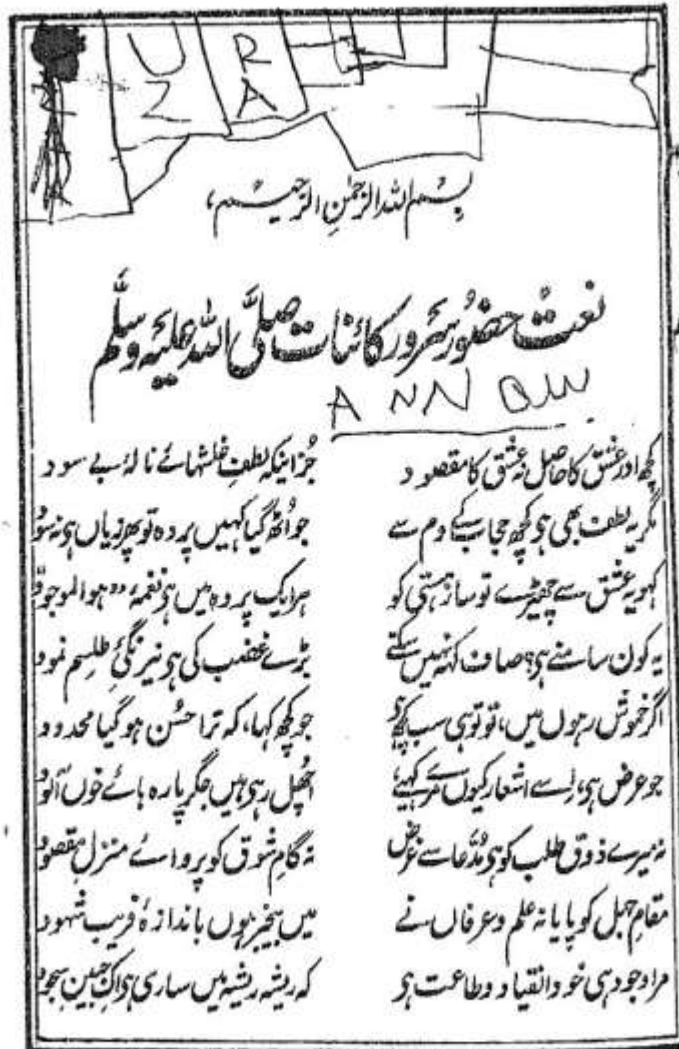 U R
Z A
بسم اللہ الرحمٰن الرحیم،
نعت حضور سرور کائنات صلی اللہ علیہ وسلم
ANN
کچھ اور عشق کا حاصل نہ عشق کا مقصود جز اینکہ لطفِ خلشہائے نالۂ بے سود
مگر یہ لطف بھی ہی کچھ حجاب کے دم سے جو اٹھ گیا کہیں پردہ تو پھر زیاں ہی نہ سود
کہو یہ عشق سے چھیڑے تو ساز ہستی کو ہر ایک پردہ میں ہی نغمہ "ہوالموجود"
یہ کون سامنے ہی؟ صاف کہہ نہیں سکتے بڑے غضب کی ہی نیرنگیٔ طلسم نمود
اگر خموش رہوں میں، تو تو ہی سب کچھ ہی جو کچھ کہا، کہ ترا حُسن ہو گیا محدود
جو عرض ہی، اِسے اشعار کیوں مرے کہیے اُچھل رہی ہیں جگر پارہ ہائے خوں آلود
نہ میرے ذوق طلب کو ہی مُدّعا سے غرض نہ گامِ شوق کو پروائے منزلِ مقصود
مقامِ جہل کو پایا نہ علم و عرفاں نے میں بیخبر ہوں باندازۂ فریب شہود
مرا وجود ہی خود انقیاد و طاعت ہی کہ ریشہ ریشہ میں ساری ہی اک جبینِ سجود